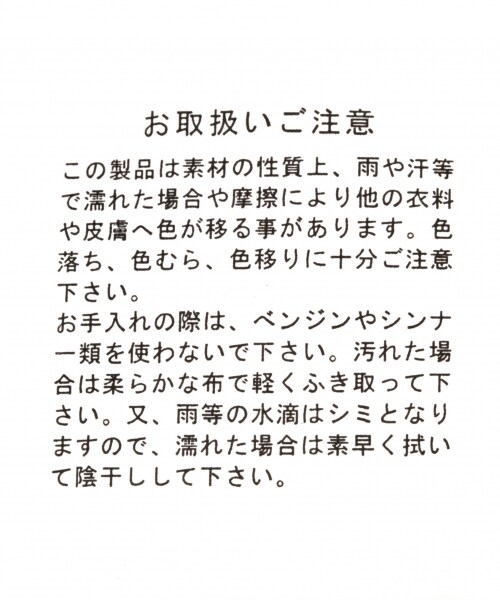 お取扱いご注意
この製品は素材の性質上、雨や汗等
で濡れた場合や摩擦により他の衣料
や皮膚へ色が移る事があります。色
落ち、色むら、色移りに十分ご注意
下さい。
お手入れの際は、ベンジンやシンナ
ー類を使わないで下さい。汚れた場
合は柔らかな布で軽くふき取って下
さい。又、雨等の水滴はシミとなり
ますので、濡れた場合は素早く拭い
て陰干しして下さい。